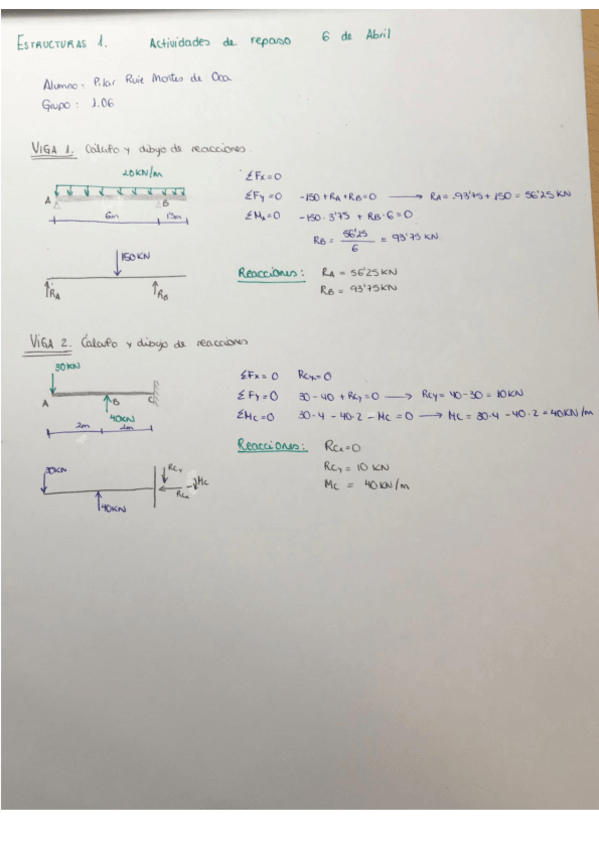 ESTRUCTURAS 1. Actividades de repaso 6 de Abril
Alumno: Pilar Ruiz Montes de Oca
Grupo: 1.06
VIGA 1. Cálculo y dibujo de reacciones.
20KN/m
A B
6m 1'5m
ΣFx=0
ΣFy=0 -150+RA+RB=0 → RA=-93'75+150=56'25 KN
ΣMA=0 -150·3'75 + RB·6=0
RB = 56'25/6 = 93'75 KN
150KN
RA RB
Reacciones: RA = 56'25KN
RB = 93'75KN
VIGA 2. Cálculo y dibujo de reacciones
30KN
A B C
40KN
2m 2m
ΣFx=0 RCx=0
ΣFy=0 30-40+RCy=0 → RCy=40-30=10KN
ΣMC=0 30·4-40·2-MC=0 → MC=30·4-40·2=40KN/m
30KN
40KN
RCy
RCx
MC
Reacciones: RCx=0
RCy=10 KN
MC = 40KN/m